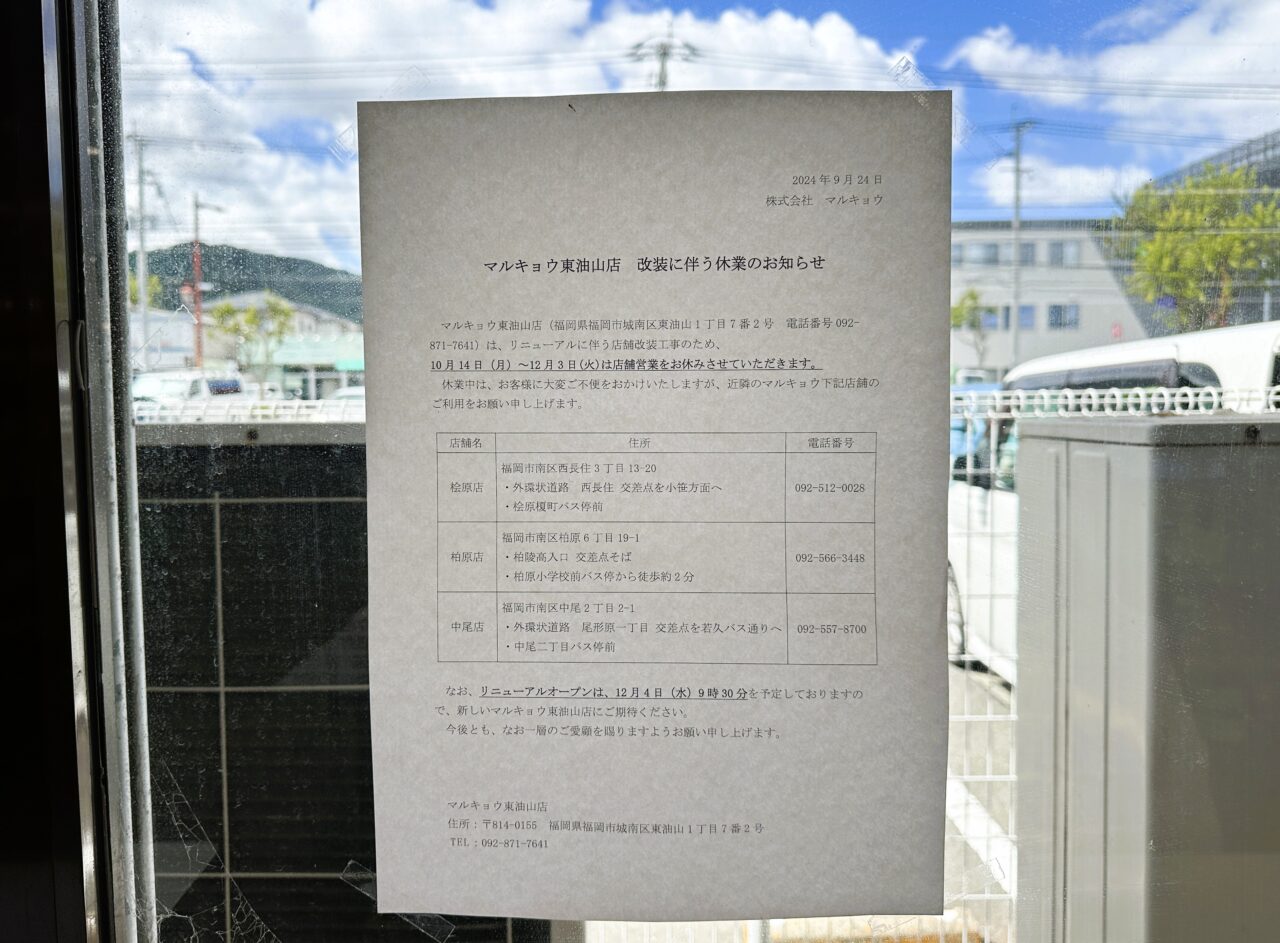 2024年9月24日
株式会社　マルキョウ
マルキョウ東油山店　改装に伴う休業のお知らせ
マルキョウ東油山店（福岡県福岡市城南区東油山1丁目7番2号　電話番号092-
871-7641）は、リニューアルに伴う店舗改装工事のため、
10月14日（月）～12月3日(火)は店舗営業をお休みさせていただきます。
休業中は、お客様に大変ご不便をおかけいたしますが、近隣のマルキョウ下記店舗の
ご利用をお願い申し上げます。
店舗名　住所　電話番号
福岡市南区西長住3丁目13-20
桧原店　・外環状道路　西長住 交差点を小笹方面へ　092-512-0028
・桧原榎町バス停前
福岡市南区柏原6丁目19-1
柏原店　・柏陵高入口 交差点そば　092-566-3448
・柏原小学校前バス停から徒歩約2分
福岡市南区中尾2丁目2-1
中尾店　・外環状道路　尾形原一丁目 交差点を若久バス通りへ　092-557-8700
・中尾二丁目バス停前
なお、リニューアルオープンは、12月4日（水）9時30分を予定しておりますの
で、新しいマルキョウ東油山店にご期待ください。
今後とも、なお一層のご愛顧を賜りますようお願い申し上げます。
マルキョウ東油山店
住所：〒814-0155　福岡県福岡市城南区東油山1丁目7番2号
TEL：092-871-7641